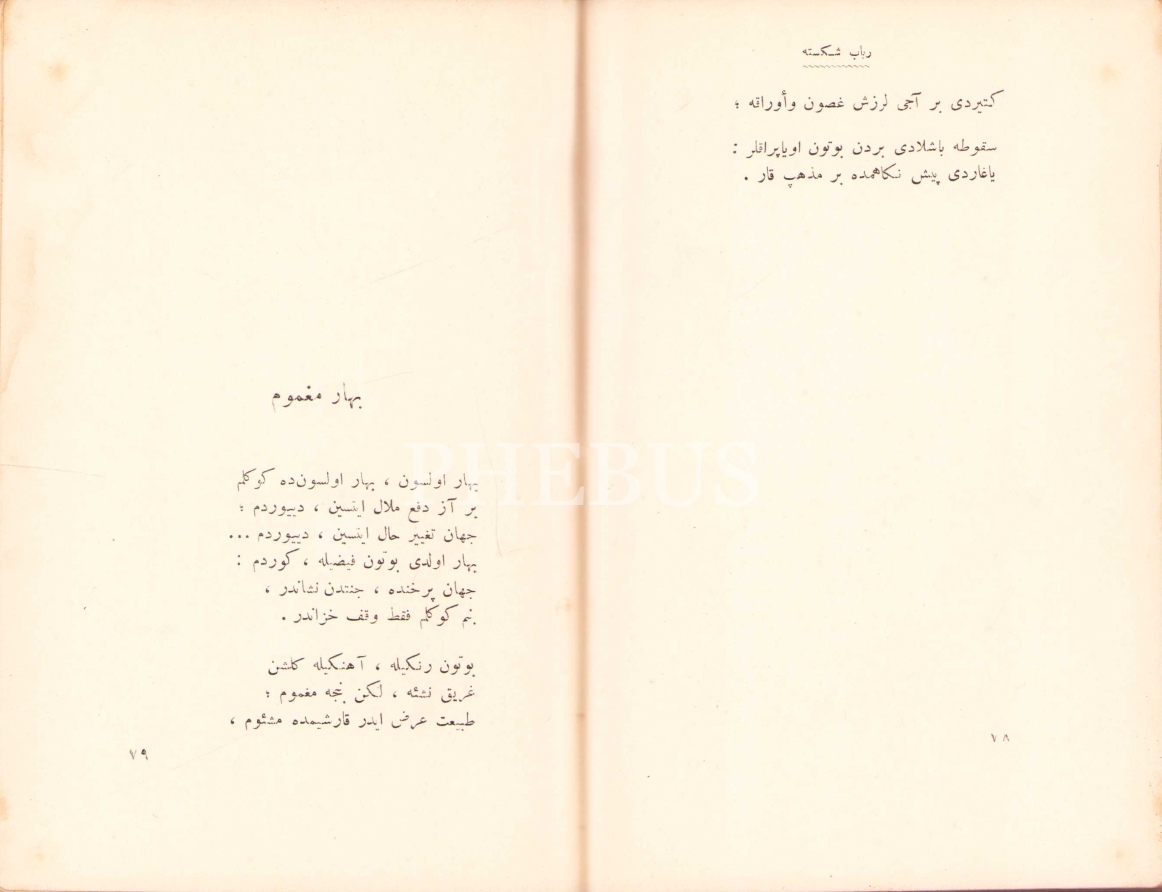 رباب شکسته
کتیردی بر آجی لرزش غصون وأوراقه ؛
سقوطه باشلادی بردن بوتون اویاپراقلر :
یاغاردی پیش نکاهمده بر مذهب قار .
٧٨
بهار مغموم
بهار اولسون ، بهار اولسون‌ده کوکلم
بر آز دفع ملال ایتسین ، دییوردم ؛
جهان تغییر حال ایتسین ، دییوردم ...
بهار اولدی بوتون فیضیله ، کوردم :
جهان پرخنده ، جنتدن نشاندر ،
بنم کوکلم فقط وقف خزاندر .
بوتون رنکیله ، آهنکیله کلشن
غریق نشئه ، لکن بنجه مغموم ؛
طبیعت عرض ایدر قارشیمده مشئوم ،
٧٩
PHEBUS